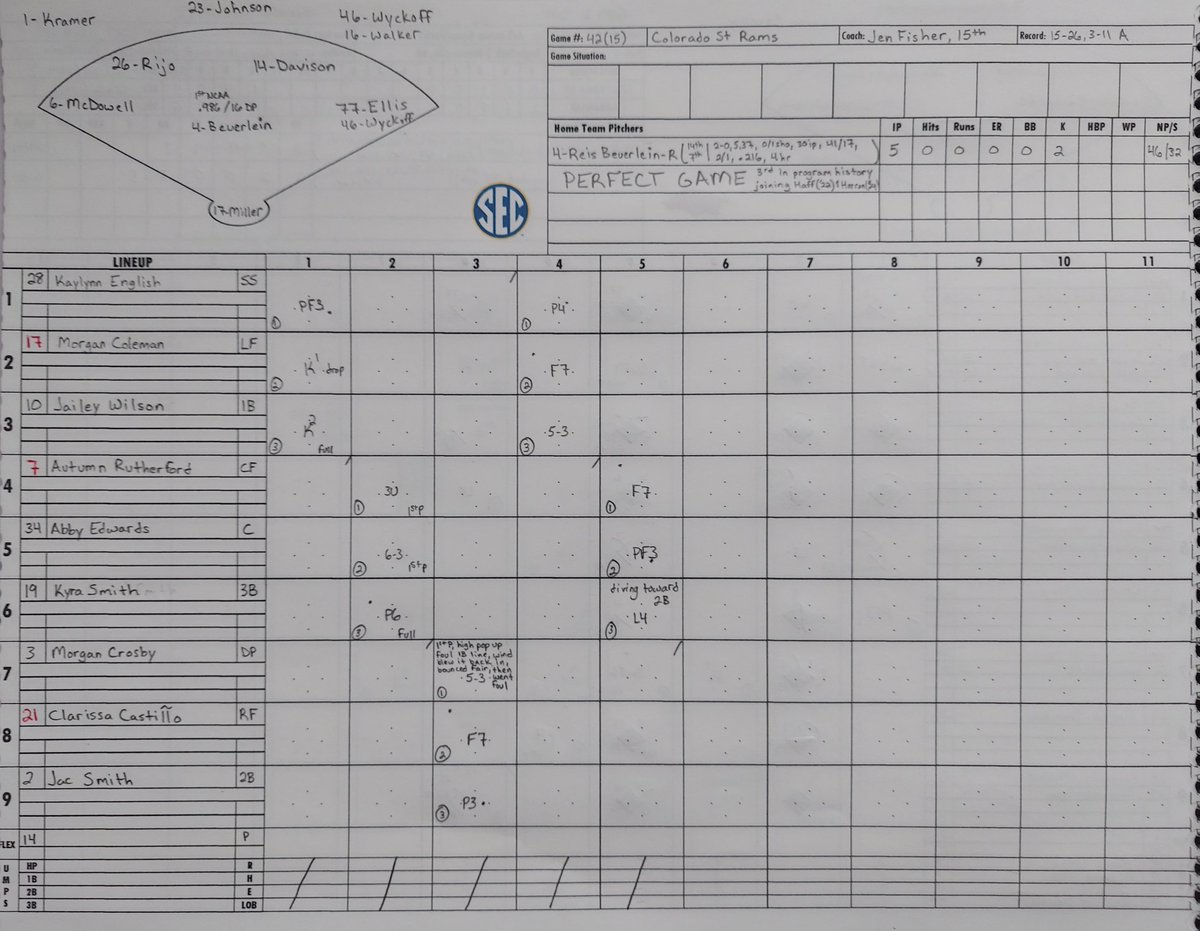 1- Kramer
23-Johnson
46-Wyckoff
16-Walker
26-Rijo
14-Davison
6-McDowell
1st NCAA
.986/16 DP
4-Beuerlein
77-Ellis
46-Wyckoff
17-Miller
SEC
Game #: 42(15) Colorado St Rams Coach: Jen Fisher, 15th Record: 15-26, 3-11 A
Game Situation:
Home Team Pitchers IP Hits Runs ER BB K HBP WP NP/S
4-Reis Beuerlein-R 14th 7th 2-0, 5.37, 0/1sho, 30ip, 41/17, 2/1, .216, 4hr 5 0 0 0 0 2 46/32
PERFECT GAME 3rd in program history
joining Haff ('22) &
LINEUP 1 2 3 4 5 6 7 8 9 10 11
1 28 Kaylynn English SS PF3 1 P4 1
2 17 Morgan Coleman LF K 1 drop 2 F7 2
3 10 Jailey Wilson 1B K 2 Full 3 5-3 3
4 7 Autumn Rutherford CF 3U 1stp 1 F7 1
5 34 Abby Edwards C 6-3 1stp 2 PF3 2
6 19 Kyra Smith 3B P6 Full 3 diving toward 2B L4 3
7 3 Morgan Crosby DP 1stP, high pop up
foul 1B line, wind
blew it back in,
bounced fair, then
5-3 went
foul 1
8 21 Clarissa Castillo RF F7 2
9 2 Jac Smith 2B P3 3
FLEX 14 P
UMPS HP R
1B H
2B E
3B LOB